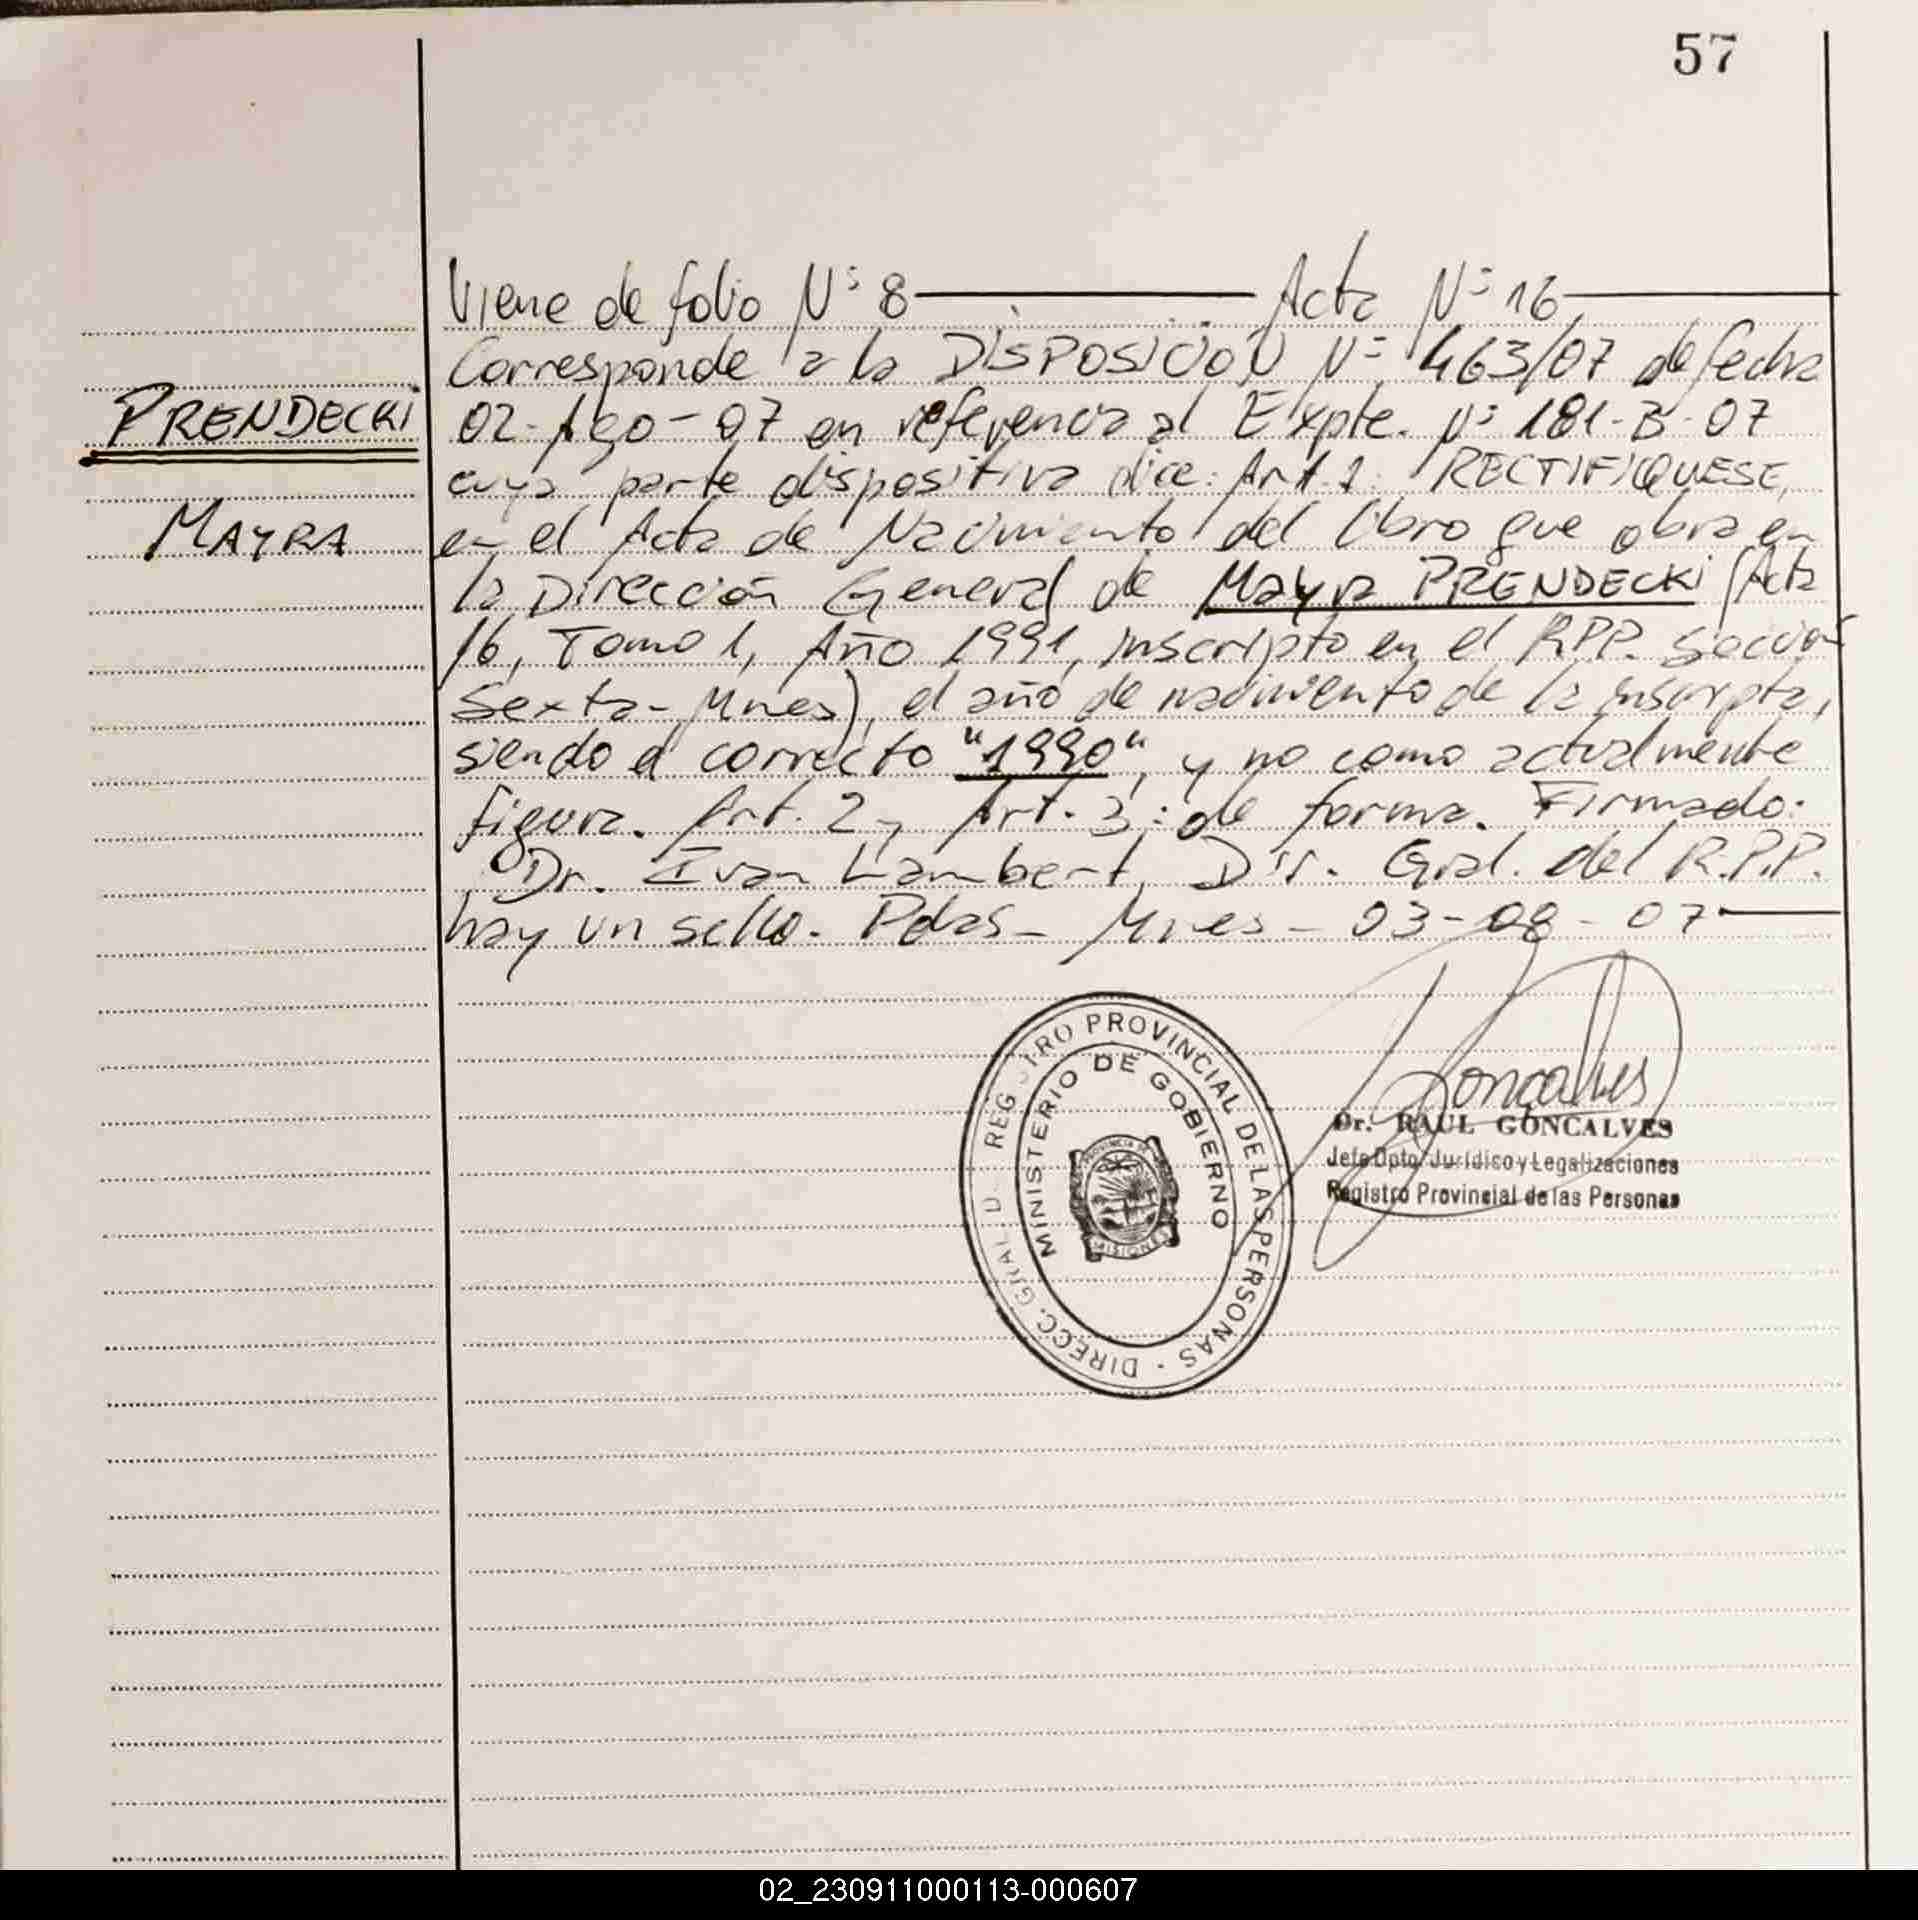 57
Viene de folio Nº 8 — Acta Nº 16 —
Corresponde a la DISPOSICIÓN Nº 463/07 de fecha
PRENDECKI
02-Ago-07 en referencia al Expte. Nº 181-B-07
cuya parte dispositiva dice: Art. 1: RECTIFIQUESE,
MAYRA
en el Acta de Nacimiento del libro que obra en
la Dirección General de Mayra PRENDECKI (Acta
16, Tomo 1, Año 1991, inscripto en el RPP. Sección
Sexta-Mnes), el año de nacimiento de la inscripta,
siendo el correcto "1990", y no como actualmente
figura. Art. 2 y Art. 3: de forma. Firmado:
Dr. Ivan Lambert, Dir. Gral. del R.P.P.
hay un sello. Pdas- Mnes - 03-08-07 —
DIRECC. GRAL. D REGISTRO PROVINCIAL DE LAS PERSONAS -
MINISTERIO DE GOBIERNO
PROVINCIA
MISIONES
Goncalves
Dr. RAUL GONCALVES
Jefe Dpto. Jurídico y Legalizaciones
Registro Provincial de las Personas
02_230911000113-000607